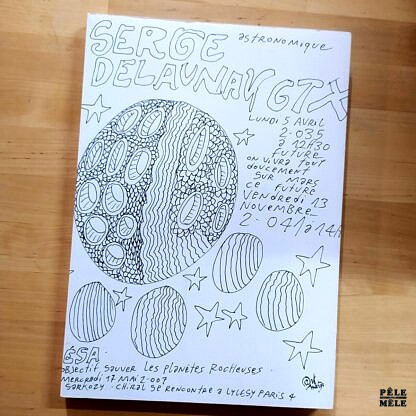 SERGE
astronomique
DELAUNAY GTX
LUNDI 5 AVRIL
2.035
à 12H30
FUTURE
on vivra tout
doucement
SUR MARS
CE FUTURE
VENDREDI 13
NOVEMBRE
2-041 à 14h
ÉSA
objectif sauver les planètes Rocheuses.
MERCREDI 17 MAI 2-007
SARKOZY. CHIRAC SE RENCONTRE à LYLESY PARIS 4
PÊLE
MÊLE